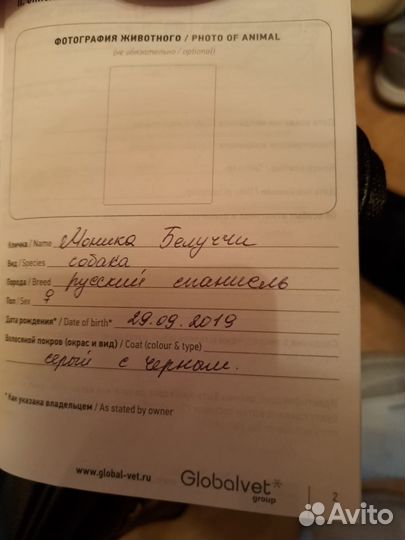 ФОТОГРАФИЯ ЖИВОТНОГО / PHOTO OF ANIMAL
(не обязательно / optional)
Кличка / Name Моника Белуччи
Вид / Species собака
Порода / Breed русский спаниель
Пол / Sex ♀
Дата рождения* / Date of birth* 29.09.2019
Волосяной покров (окрас и вид) / Coat (colour & type)
серый с черным.
* Как указана владельцем / As stated by owner
www.global-vet.ru
Globalvet*
group
2
Avito